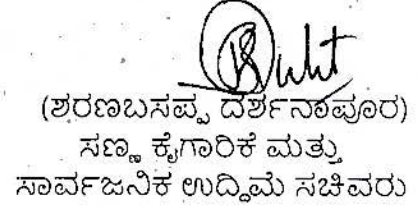 (ಶರಣಬಸಪ್ಪ ದರ್ಶನಾಪೂರ)
ಸಣ್ಣ ಕೈಗಾರಿಕೆ ಮತ್ತು
ಸಾರ್ವಜನಿಕ ಉದ್ದಿಮೆ ಸಚಿವರು